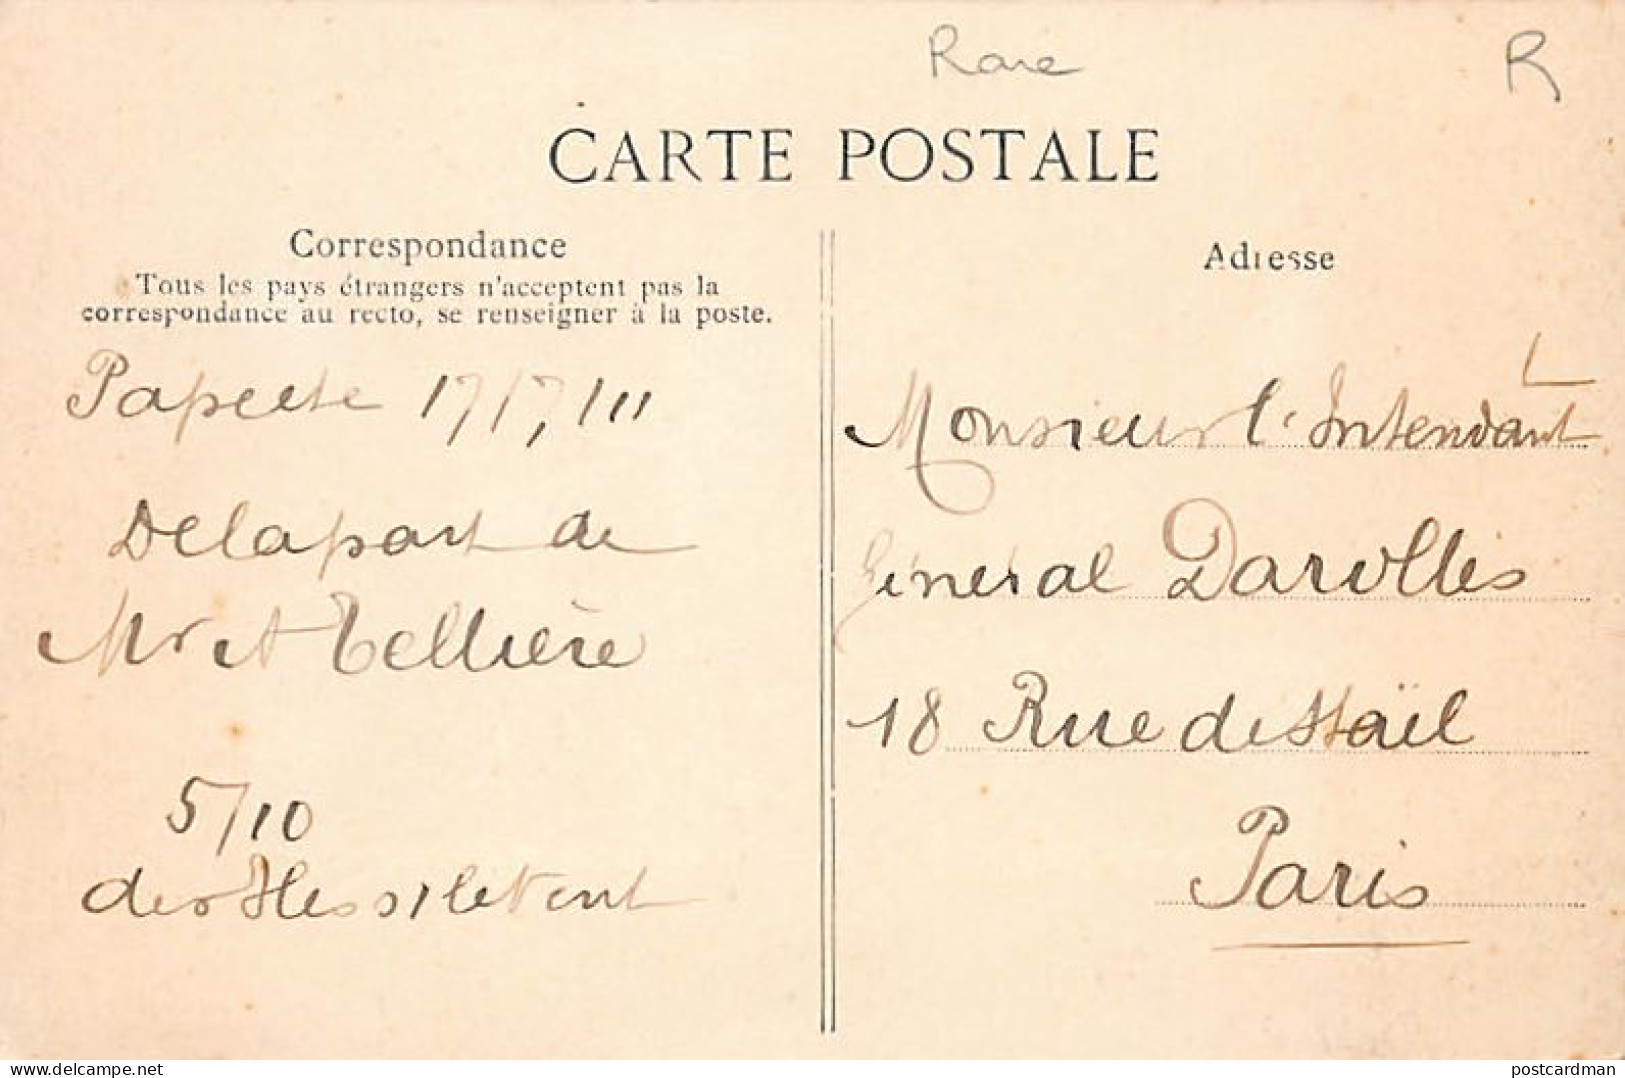 Rare
R
CARTE POSTALE
Correspondance
Tous les pays étrangers n'acceptent pas la
correspondance au recto, se renseigner à la poste.
Papeete 17/7/11
Delapart de
Mr A Tellière
5/10
des Iles s/le Vent
Adresse
Monsieur l'Intendant
Général Darolles
18 Rue de Staël
Paris
delcampe.net
postcardman